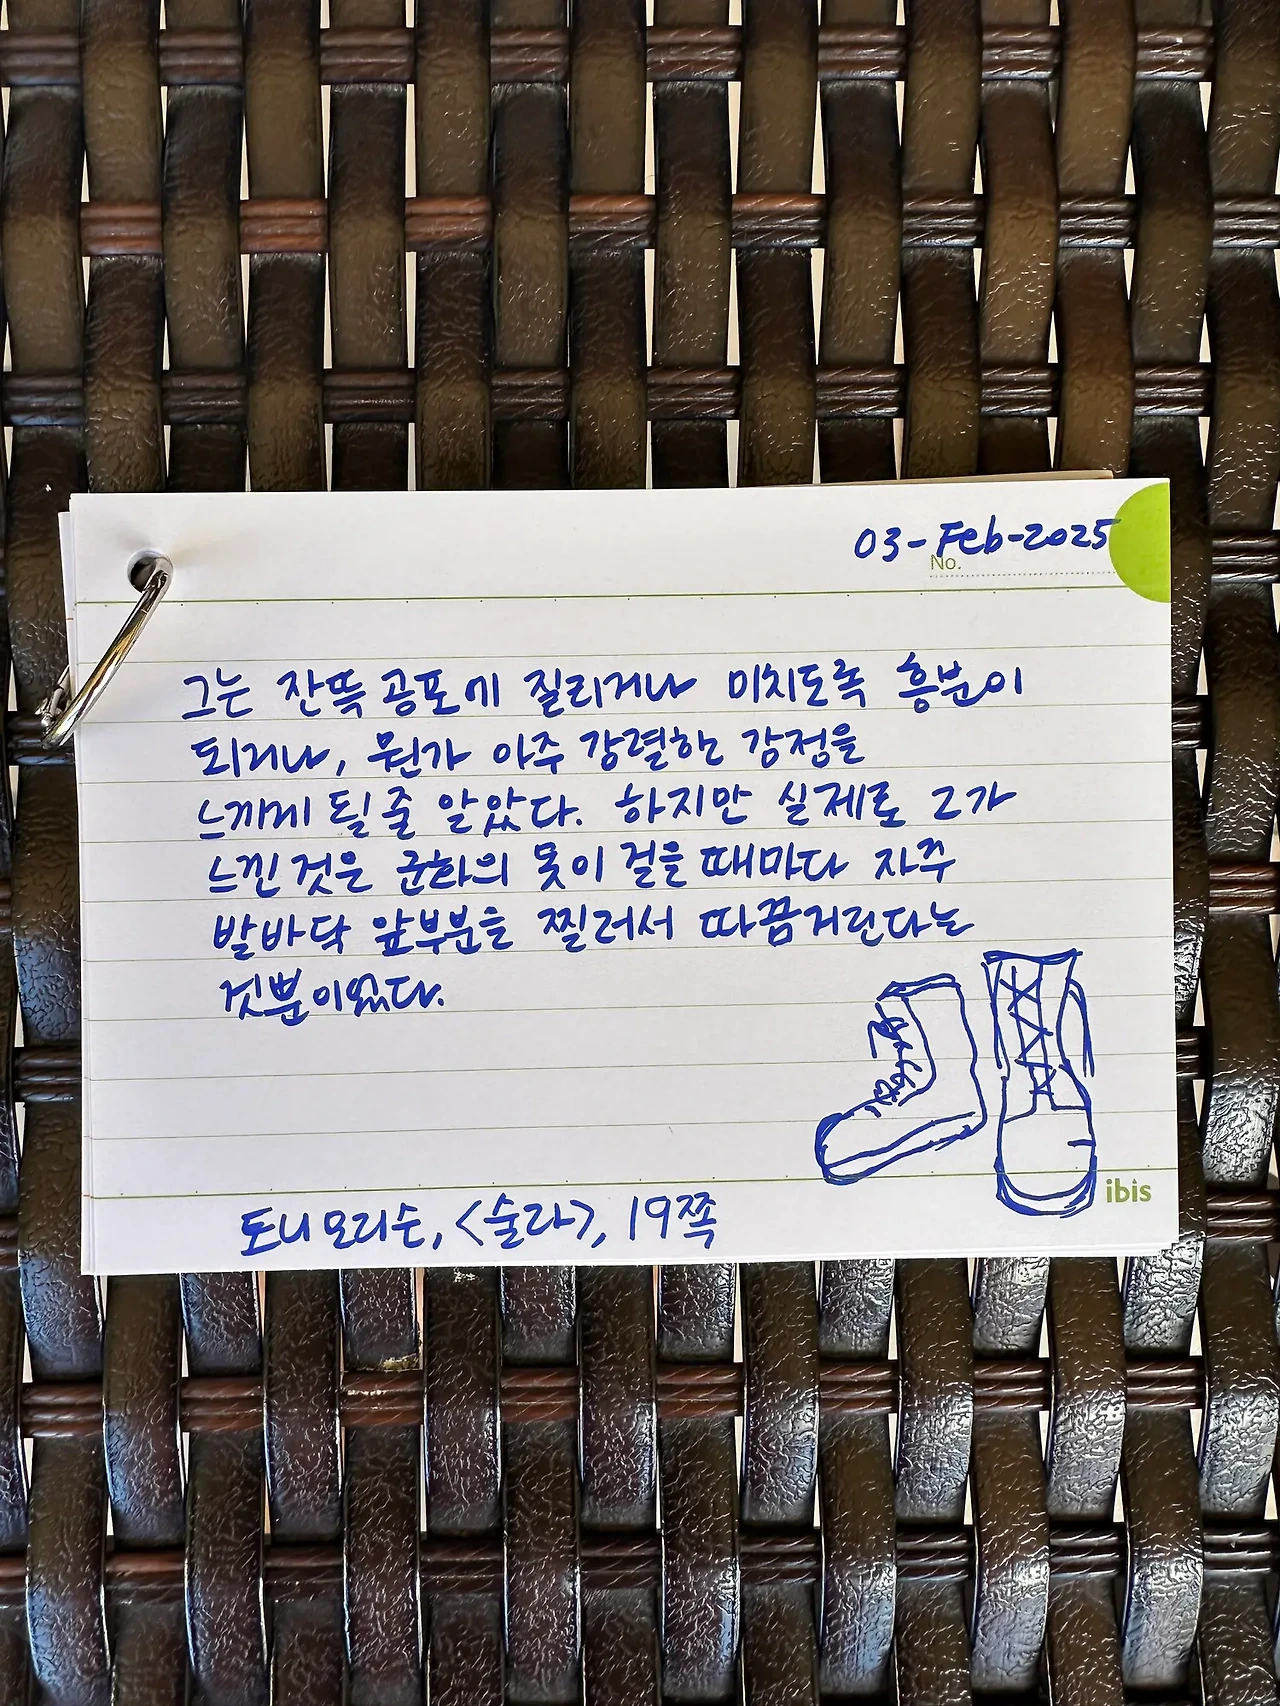 03-Feb-2025
No.
그는 잔뜩 공포에 질리거나 미치도록 흥분이
되거나, 뭔가 아주 강렬한 감정을
느끼게 될 줄 알았다. 하지만 실제로 그가
느낀 것은 군화의 못이 걸을 때마다 자주
발바닥 앞부분을 찔러서 따끔거린다는
것뿐이었다.
ibis
토니 모리슨, <술라>, 19쪽